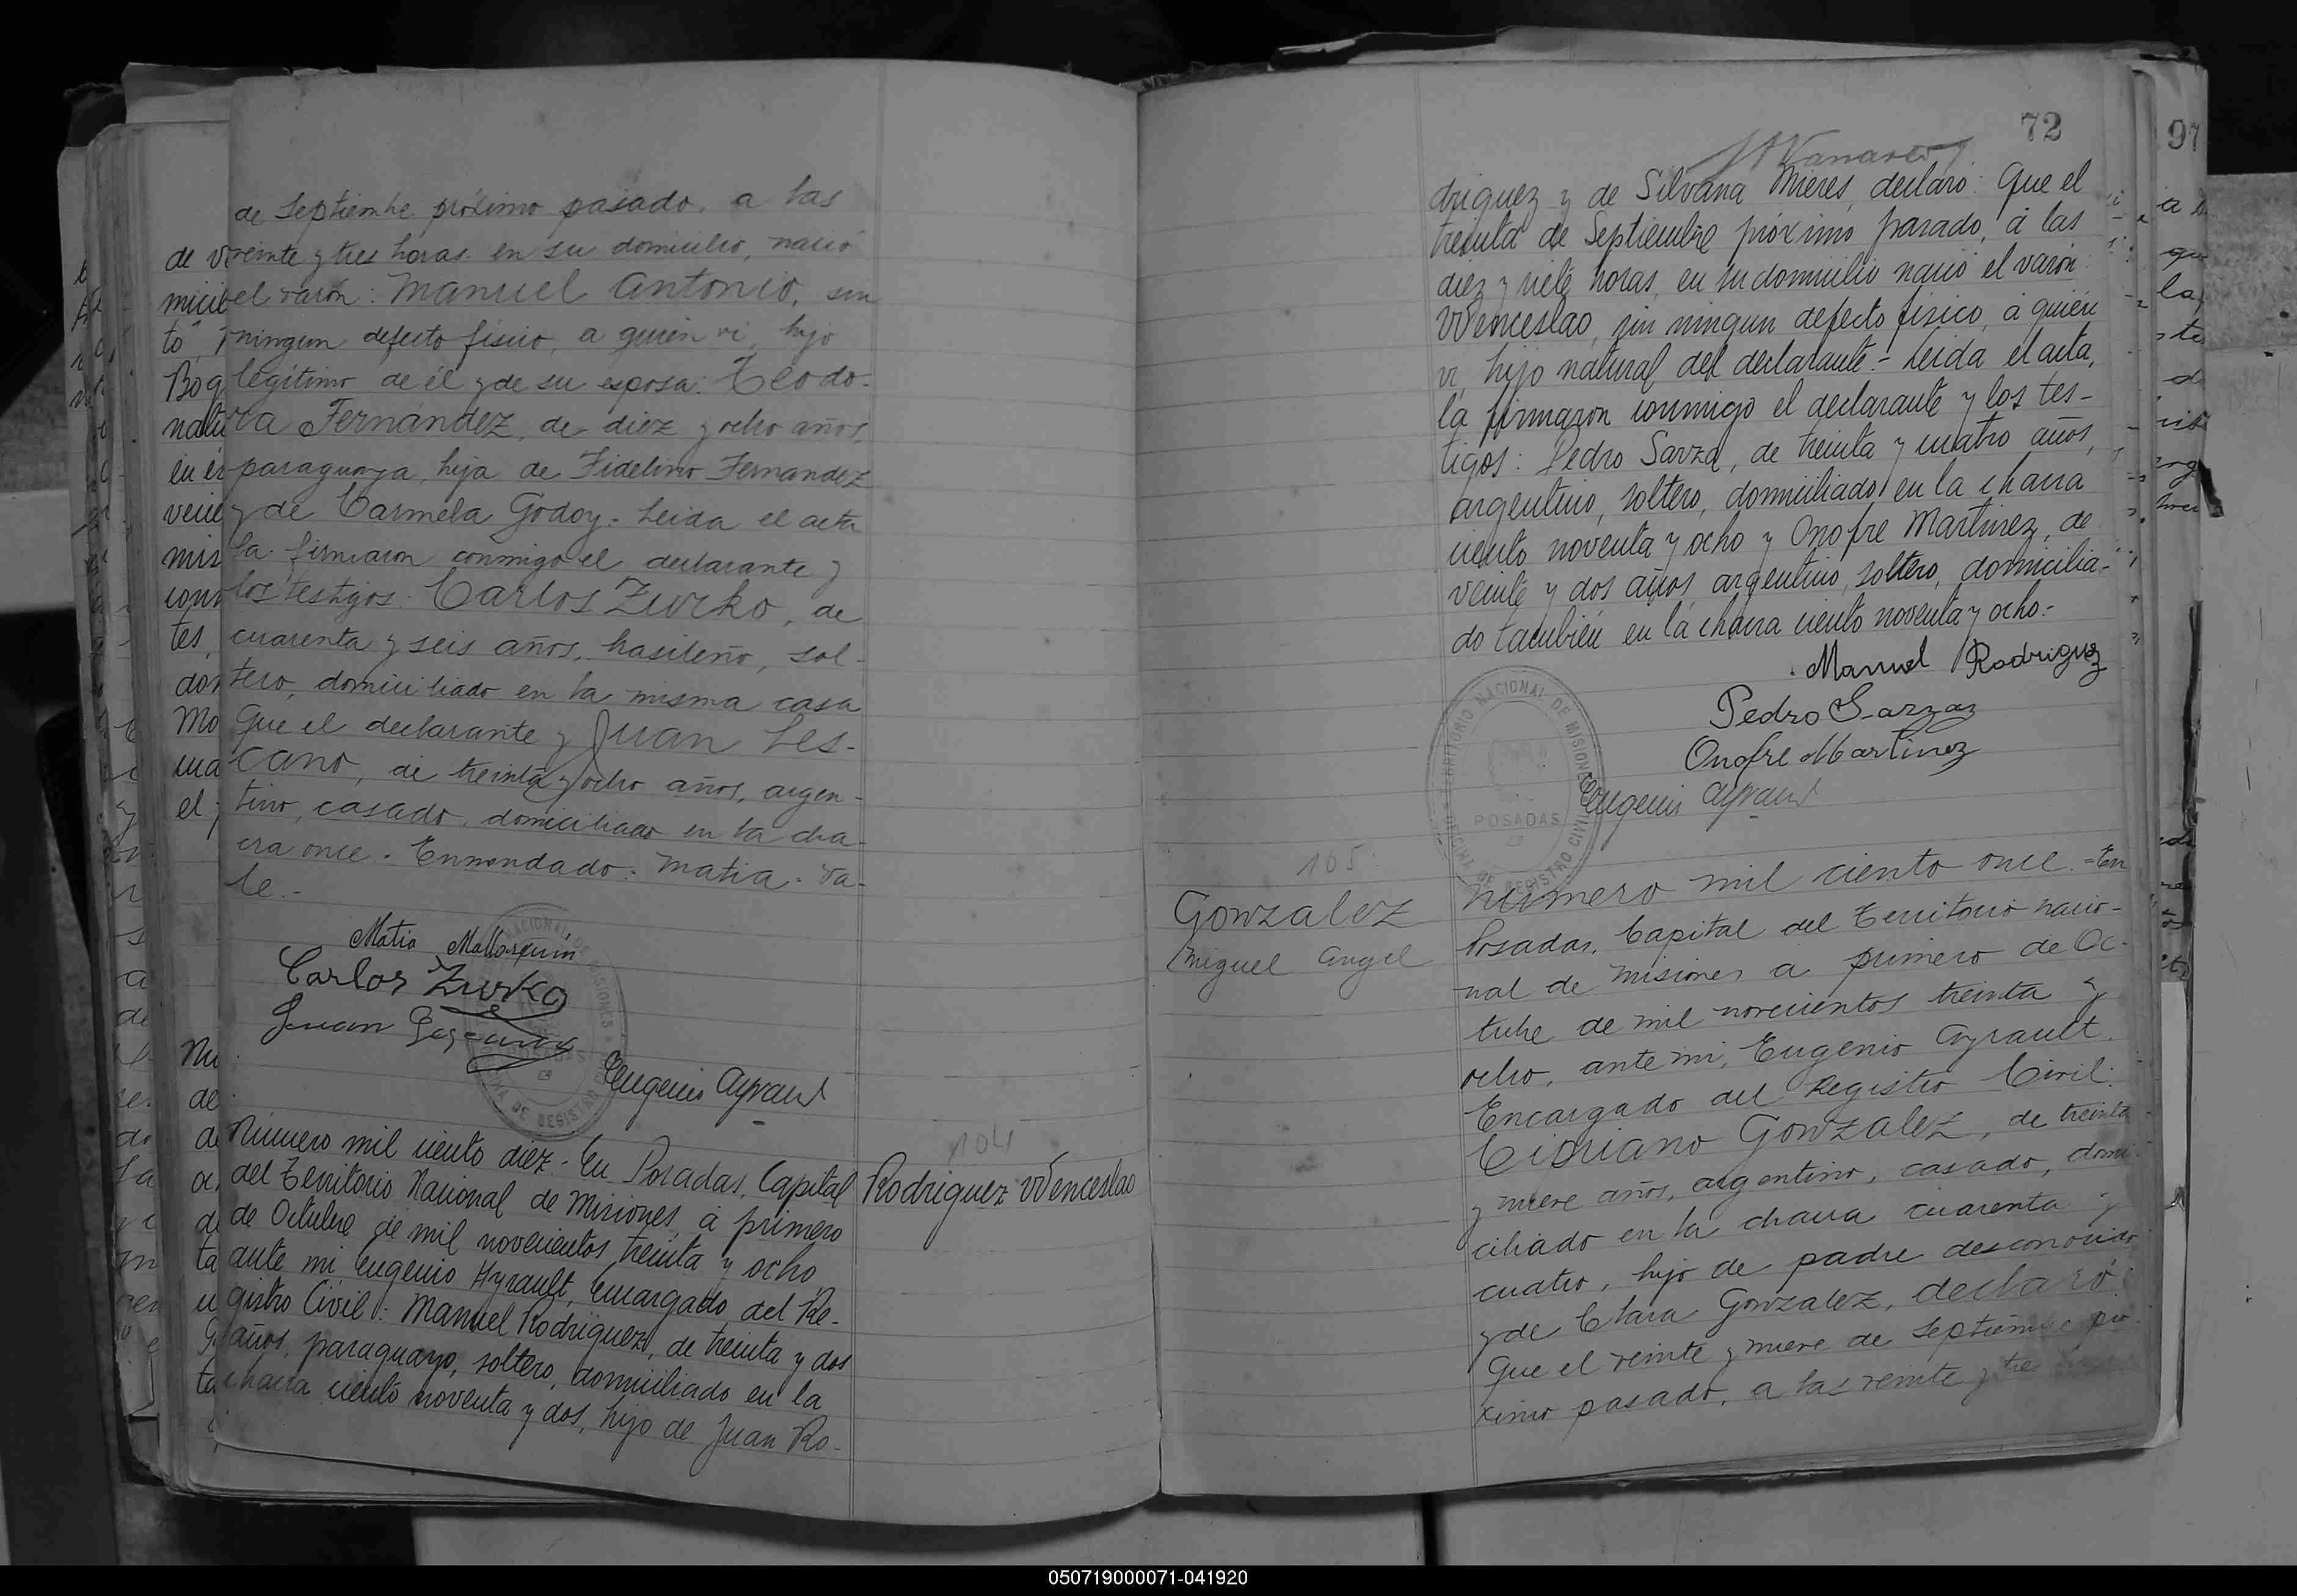 de Septiembre próximo pasado, a las
veinte y tres horas en su domicilio, nació
el varón: Manuel Antonio, sin
ningun defecto físico, a quién vi, hijo
legítimo de él y de su esposa: Teodo-
ra Fernández, de diez y ocho años,
paraguaya, hija de Fidelino Fernandez
y de Carmela Godoy. Leida el acta
la firmaron conmigo el declarante y
los testigos: Carlos Zurko, de
cuarenta y seis años, brasileño, sol-
tero, domiciliado en la misma casa
que el declarante y Juan Les-
cano, de treinta y ocho años, argen-
tino, casado, domiciliado en la cha-
cra once. Enmendado: Matia. Va-
le.-
Matia Mallorquin
Carlos Zurko
Juan Lescano
Eugenio Ayrault
104
Rodriguez Wenceslao
Número mil ciento diez.- En Posadas, Capital
del Territorio Nacional de Misiones, á primero
de Octubre de mil novecientos treinta y ocho
ante mi Eugenio Ayrault, Encargado del Re-
gistro Civil: Manuel Rodriguez, de treinta y dos
años, paraguayo, soltero, domiciliado en la
chacra ciento noventa y dos, hijo de Juan Ro-
72
driguez y de Silvana Mieres, declaró: Que el
treinta de Septiembre próximo pasado, á las
diez y siete horas, en su domicilio nació el varón:
Wenceslao, sin ningun defecto físico, á quién
vi, hijo natural del declarante.- Leida el acta,
la firmaron conmigo el declarante y los tes-
tigos: Pedro Sarza, de treinta y cuatro años,
argentino, soltero, domiciliado en la chacra
ciento noventa y ocho y Onofre Martinez, de
veinte y dos años, argentino, soltero, domicilia-
do también en la chacra ciento noventa y ocho.-
Manuel Rodriguez
Pedro Sarza
Onofre Martinez
Eugenio Ayrault
TERRITORIO NACIONAL DE MISIONES
POSADAS
OFICINA DE REGISTRO CIVIL
105
Gonzalez
Miguel Angel
Número mil ciento once.=En
Posadas, Capital del Territorio nacio-
nal de Misiones a primero de Oc-
tubre de mil novecientos treinta y
ocho, ante mi, Eugenio Ayrault,
Encargado del Registro Civil:
Cipriano Gonzalez, de treinta
y nueve años, argentino, casado, domi-
ciliado en la chacra cuarenta y
cuatro, hijo de padre desconocido
y de Clara Gonzalez, declaró:
Que el veinte y nueve de Septiembre pró-
ximo pasado, a las veinte y tre
97